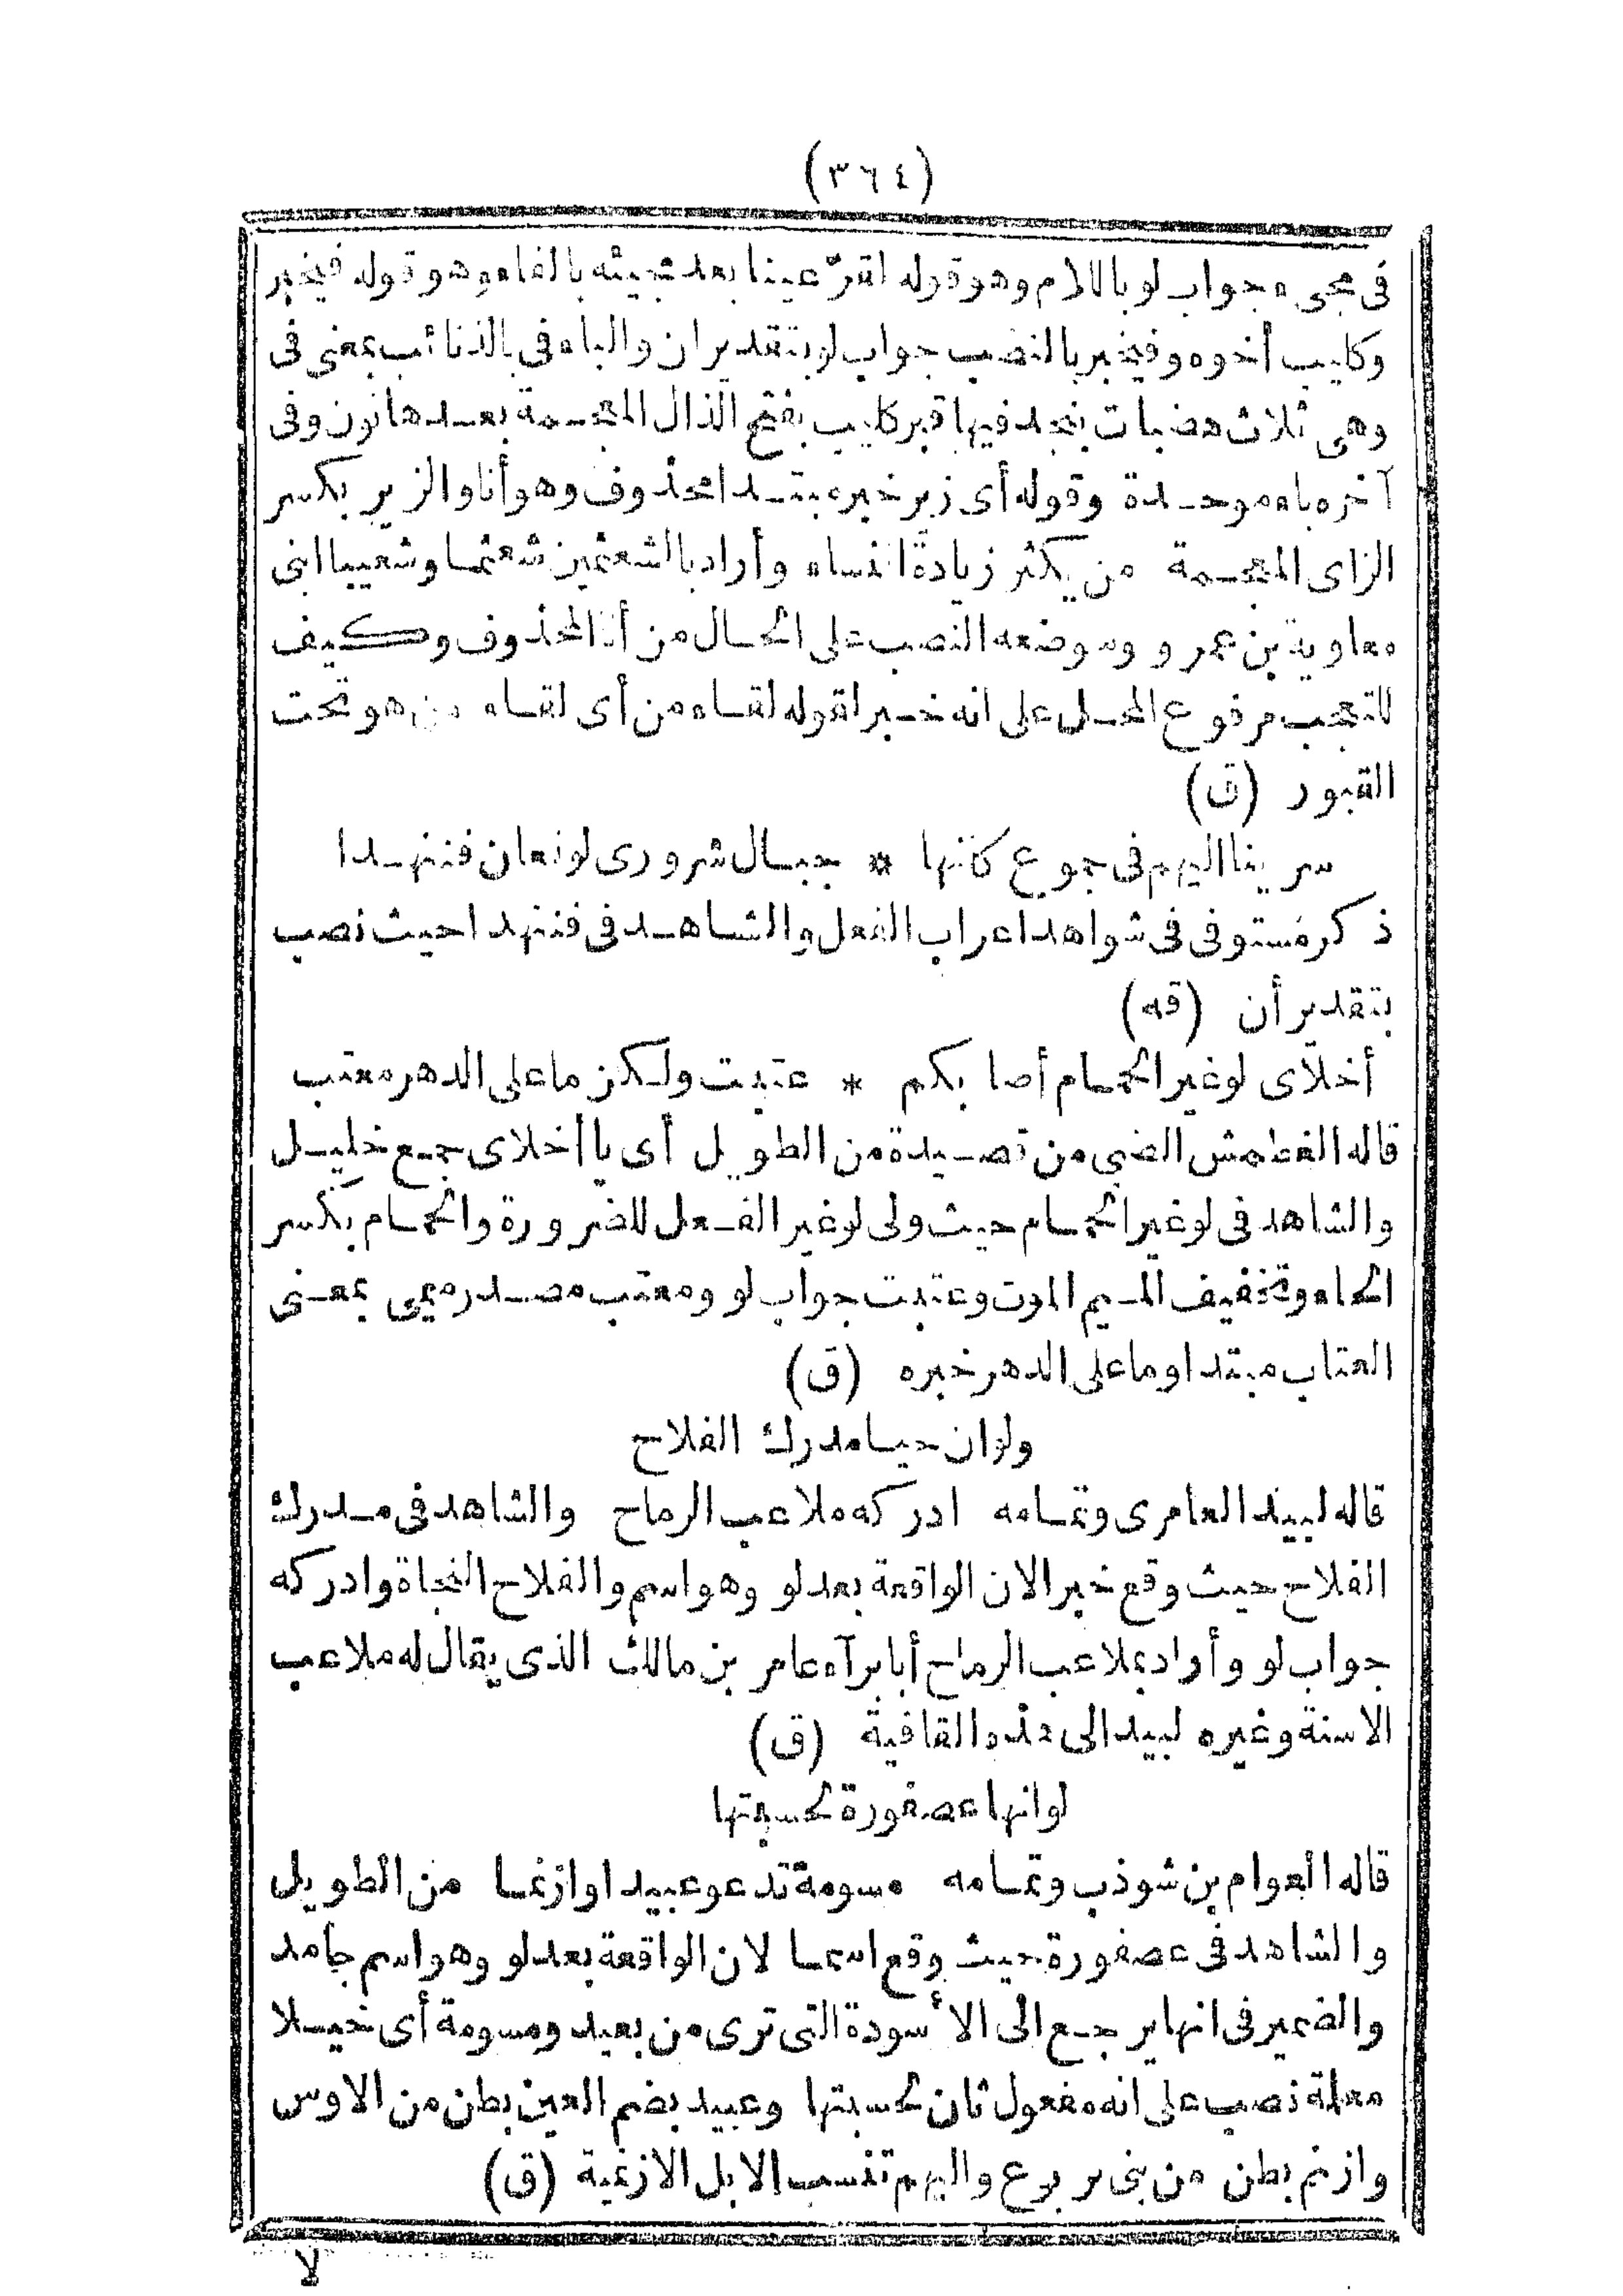 (٣٦٤)
فى مجىء جواب لو باللام وهو قوله لقرّ عينا بعد مجيئه بالفاء وهو قوله فيخبر
وكليب أخوه وفيخبر بالنصب جواب لو بتقدير ان والباء فى بالذنائب بمعنى فى
وهى ثلاث هضبات بنجد فيها قبر كليب بفتح الذال المعجمة بعدها نون وفى
آخره باء موحدة وقوله أى زير خبر مبتدا محذوف وهو أنا والزير بكسر
الزاى المعجمة من يكثر زيادة النساء وأراد بالشعثمين شعثما وشعيبا ابنى
معاوية بن عمرو وموضعه النصب على الحال من أنا المحذوف وكيف
للتعجب مرفوع المحل على انه خبر لقوله لقاء من أى لقاء من هو تحت
القبور (ق)
سرينا اليهم فى جموع كأنها * جبال شرورى لو نعان فننهدا
ذكر مستوفى فى شواهد اعراب الفعل والشاهد فى فننهدا حيث نصب
بتقدير أن (قه)
أخلاى لو غير الحمام أصابكم * عتبت ولكن ما على الدهر معتب
قاله الغطمش الضبى من قصيدة من الطويل أى يا أخلاى جمع خليل
والشاهد فى لو غير الحمام حيث ولى لو غير الفعل للضرورة والحمام بكسر
الحاء وتخفيف الميم الموت وعتبت جواب لو ومعتب مصدر ميمى بمعنى
العتاب مبتدا وما على الدهر خبره (ق)
ولو ان حيا مدرك الفلاح
قاله لبيد العامرى وتمامه ادركه ملاعب الرماح والشاهد فى مدرك
الفلاح حيث وقع خبرا لان الواقعة بعد لو وهو اسم والفلاح النجاة وادركه
جواب لو وأراد بملاعب الرماح أبا براء عامر بن مالك الذى يقال له ملاعب
الاسنة وغيره لبيد الى هذه القافية (ق)
لو انها عصفورة لحسبتها
قاله العوام بن شوذب وتمامه مسومة تدعو عبيدا وازنما من الطويل
والشاهد فى عصفورة حيث وقع اسما لان الواقعة بعد لو وهو اسم جامد
والضمير فى انها يرجع الى الأسودة التى ترى من بعيد ومسومة أى خيلا
معلمة نصب على انه مفعول ثان لحسبتها وعبيد بضم العين بطن من الاوس
وازنم بطن من بنى يربوع واليهم تنسب الابل الازنمية (ق)
لا